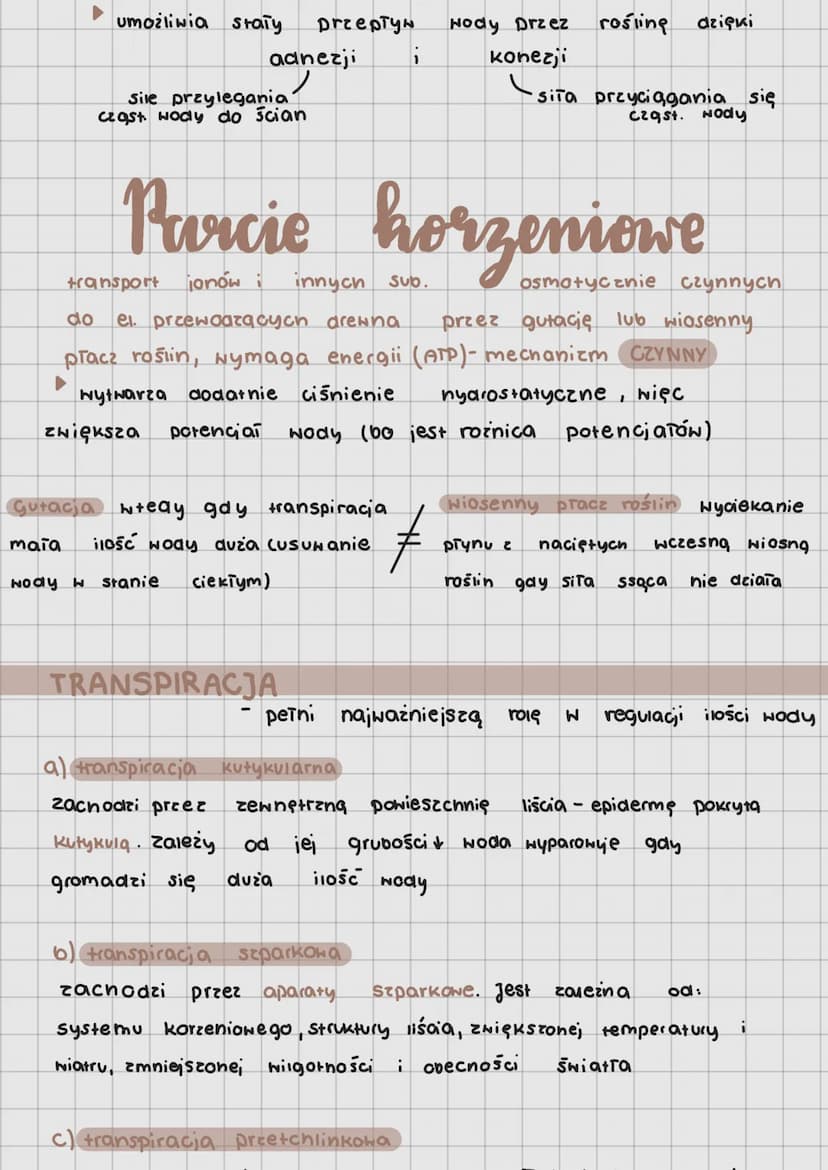 ▸ umożliwia stały przepływ wody przez roślinę dzięki
adhezji i kohezji
siłe przylegania cząst. wody do ścian
siła przyciągania się cząst. wody
Parcie korzeniowe
transport jonów i innych sub. osmotycznie czynnych
do el. przewodzących drewna przez gutację lub wiosenny
płacz roślin, wymaga energii (ATP) - mechanizm CZYNNY
▸ wytwarza dodatnie ciśnienie hydrostatyczne, więc
zwiększa potencjał wody (bo jest różnica potencjałów)
Gutacja wtedy gdy transpiracja
mała ilość wody duża (usuwanie
wody w stanie ciekłym)
≠
wiosenny płacz roślin wyciekanie
płynu z naciętych wczesną wiosną
roślin gdy siła ssąca nie działa
TRANSPIRACJA
- pełni najważniejszą rolę w regulacji ilości wody
a) transpiracja kutykularna
zachodzi przez zewnętrzną powieszchnię liścia - epidermę pokrytą
kutykulą. Zależy od jej grubości ↓ woda wyparowuje gdy
gromadzi się duża ilość wody
b) transpiracja szparkowa
zachodzi przez aparaty szparkowe. Jest zależna od:
systemu korzeniowego, struktury liścia, zwiększonej temperatury i
wiatru, zmniejszonej wilgotności i obecności światła
c) transpiracja przetchlinkowa